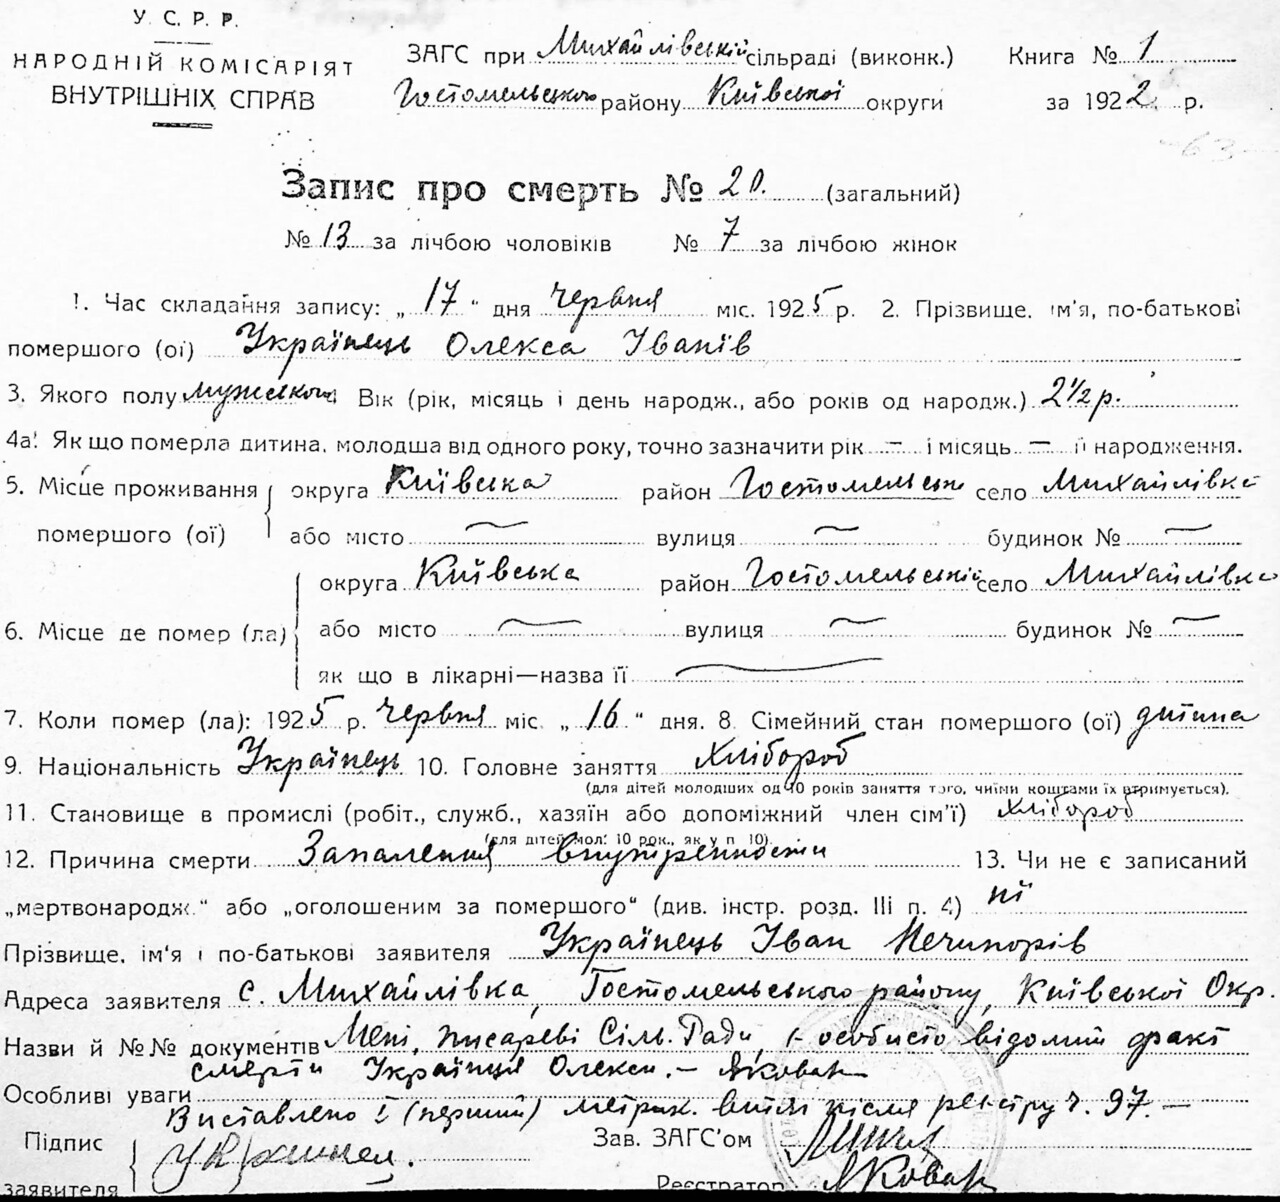 У. С. Р. Р.
НАРОДНІЙ КОМІСАРІЯТ
ВНУТРІШНІХ СПРАВ
ЗАГС при Михайлівській сільраді (виконк.) Книга № 1
Гостомельського району Київської округи за 1922 р.
-63-
Запис про смерть № 20. (загальний)
№ 13 за лічбою чоловіків № 7 за лічбою жінок
1. Час складання запису: „ 17 “ дня червня міс. 1925 р. 2. Прізвище, ім'я, по-батькові
помершого (ої) Українець Олекса Іванів
3. Якого полу мужського Вік (рік, місяць і день народж., або років од народж.) 2½ р.
4а. Як що померла дитина, молодша від одного року, точно зазначити рік — і місяць — її народження.
5. Місце проживання помершого (ої)
округа Київська район Гостомельськ село Михайлівка
або місто — вулиця — будинок № —
6. Місце де помер (ла)
округа Київська район Гостомельській село Михайлівка
або місто — вулиця — будинок № —
як що в лікарні—назва її —
7. Коли помер (ла): 1925 р. червня міс. „ 16 “ дня. 8 Сімейний стан помершого (ої) дитина
9. Національність Українець 10. Головне заняття хлібороб
(для дітей молодших од 10 років заняття того, чиїми коштами їх втримується).
11. Становище в промислі (робіт., служб., хазяїн або допоміжний член сім'ї) хлібороб
(для дітей мол. 10 рок., як у п 10).
12. Причина смерти Запалення внутренности 13. Чи не є записаний
„мертвонародж.“ або „оголошеним за помершого“ (див. інстр. розд. III п. 4) ні
Прізвище, ім'я і по-батькові заявителя Українець Іван Нечипорів
Адреса заявителя с. Михайлівка, Гостомельського району, Київської Окр.
Назви й №№ документів Мені, писареві Сіль. Ради, особисто відомий факт
смерти Українця Олекси. —
Особливі уваги
Виставлено І (перший) метрик. витяг після реєстру ч. 97. —
Підпис заявителя
Зав. ЗАГС'ом
Реєстратор